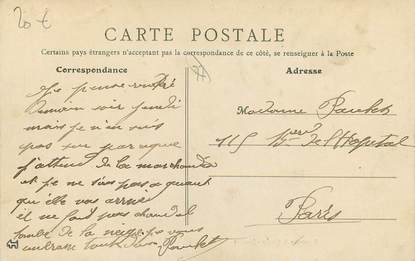 20 €
CARTE POSTALE
Certains pays étrangers n'acceptant pas la correspondance de ce côté, se renseigner à la Poste
Correspondance
Adresse
Je pense
demain soir jeudi
mais je n'en suis
pas sur parce que
j'attend de la marchandise
et je ne sais pas quand
qu'elle vas arrive
il ne fait pas chaud il
tombe de la neige
Madame
115 de l'Hopital
Paris